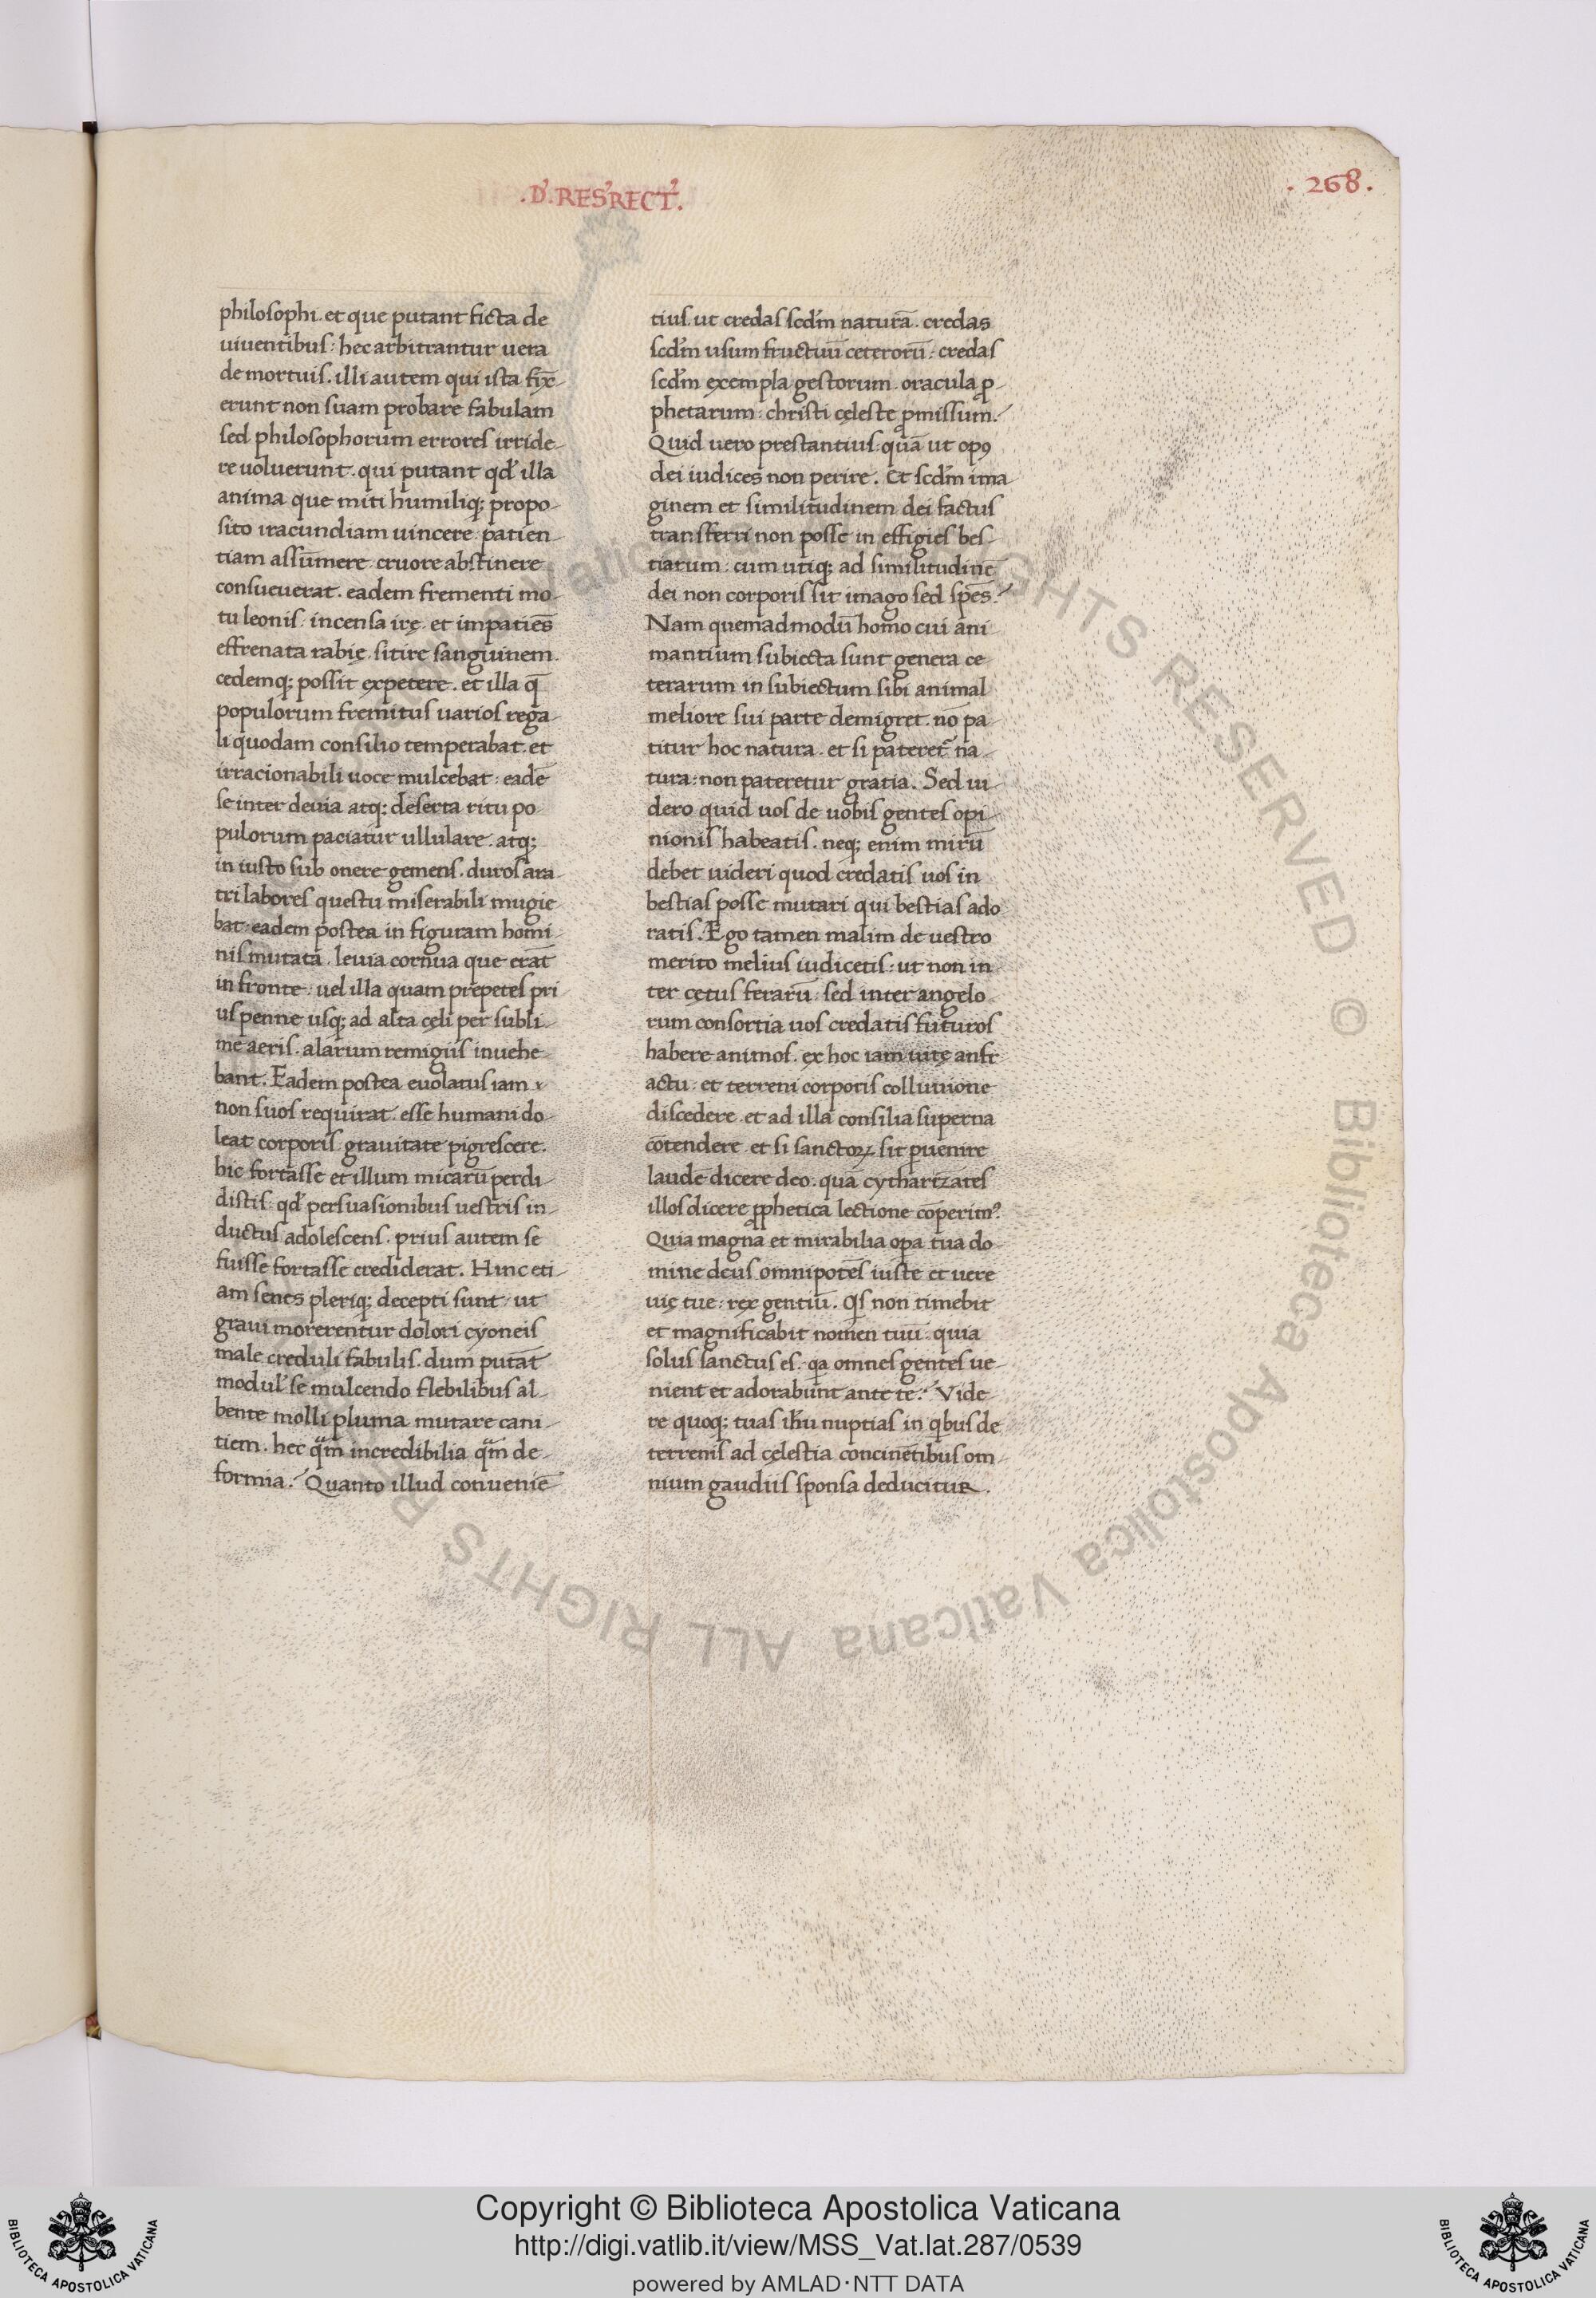 .D'. RES'RECT'.
. 268 .
philosophi. et que putant ficta de
uiuentibus: hec arbitrantur uera
de mortuis. illi autem qui ista fix̄-
erunt non suam probare fabulam
sed philosophorum errores irride-
re uoluerunt. qui putant qd' illa
anima que miti humiliq; propo-
sito iracundiam uincere. patien-
tiam assumere. cruore abstinere
consueuerat. eadem frementi mo-
tu leonis: incensa irę. et impatiēs
effrenata rabię. sitire sanguinem.
cedemq; possit expetere. et illa q̄
populorum fremitus uarios rega-
li quodam consilio temperabat. et
irracionabili uoce mulcebat: eadē
se inter deuia atq; deserta ritu po
pulorum paciatur ullulare. atq;
in iusto sub onere gemens. duros ara-
tri labores questu miserabili mugie-
bat: eadem postea in figuram homi-
nis mutata. leuia cornua que erāt
in fronte: uel illa quam prepetes pri
us penne usq; ad alta cęli per subli-
me aeris. alarum remigiis inuehe-
bant. Eadem postea euolatus iam
non suos requirat. esse humani do-
leat corporis grauitate pigrescere.
hic fortasse et illum micarū perdi-
distis: qd' persuasionibus uestris in-
ductus adolescens. prius autem se
fuisse fortasse crediderat. Hinc eti-
am senes pleriq; decepti sunt: ut
graui morerentur dolori cyoneis
male creduli fabulis. dum putāt
modul' se mulcendo flebilibus al-
bente molli pluma mutare cani-
tiem. hec q̄m incredibilia q̄m de-
formia. Quanto illud conueniē-
tius. ut credas scd'm naturā. credas
scd'm usum fructuū ceterorū: credas
scd'm exempla gestorum. oracula ꝓ-
phetarum: christi cęleste ꝓmissum.
Quid uero prestantius: quā ut opꝰ
dei iudices non perire. Et scd'm ima
ginem et similitudinem dei factus
transferri non posse in effigies bes-
tiarum: cum utiq; ad similitudinē
dei non corporis sit imago sed spēs.
Nam quemadmodū homo cui ani-
mantium subiecta sunt genera ce-
terarum in subiectum sibi animal
meliore sui parte demigret. nō pa-
titur hoc natura. et si pateret' na-
tura: non pateretur gratia. Sed ui-
dero quid uos de uobis gentes opi-
nionis habeatis. neq; enim mirū
debet uideri quod credatis uos in
bestias posse mutari qui bestias ado
ratis. Ego tamen malim de uestro
merito melius iudicetis: ut non in-
ter cętus ferarū: sed inter angelo-
rum consortia uos credatis futuros
habere animos. ex hoc iam uitę anfr-
actu: et terreni corporis colluuione
discedere. et ad illa consilia superna
cōtendere. et si sanctoꝝ sit ꝑuenire
laudē dicere deo. quā cythariz̄ates
illos dicere ꝓphetica lectione cōperimꝰ.
Quia magna et mirabilia opa tua do-
mine deus omnipotēs iuste et uere
uię tue: rex gentiū. Q's non timebit
et magnificabit nomen tuū. quia
solus sanctus es. qa omnes gentes ue-
nient et adorabunt ante te. Vide-
re quoq; tuas ih̄u nuptias in qbus de
terrenis ad cęlestia concinētibus om-
nium gaudiis sponsa deducitur.
Copyright © Biblioteca Apostolica Vaticana
http://digi.vatlib.it/view/MSS_Vat.lat.287/0539
powered by AMLAD·NTT DATA
BIBLIOTECA APOSTOLICA VATICANA
BIBLIOTECA APOSTOLICA VATICANA
Vaticana ALL RIGHTS RESERVED © Biblioteca Apostolica Vaticana ALL RIGHTS R